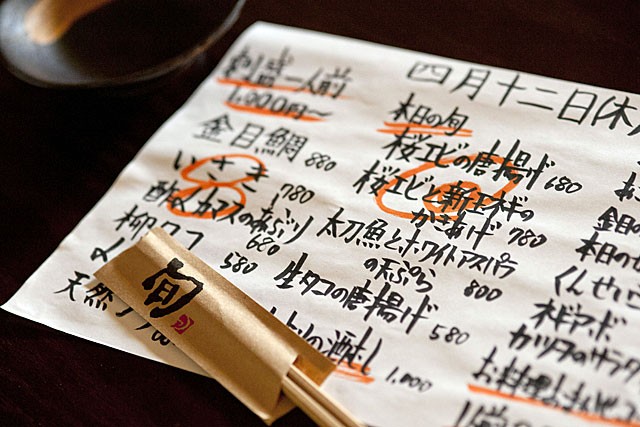 四月十二日(木)
刺盛一人前
1,000円〜
金目鯛 880
いさき 780
酢〆カマスの炙り 680
柳タコ 580
〆
天然
旬
本日の旬
桜エビの唐揚げ 680
桜エビと新玉ネギの
かきあげ 780
太刀魚とホワイトアスパラ
の天ぷら 800
生タコの唐揚げ 580
の酒むし 1,000
金目
本日の
くんせい
カツオのサラダ
お料理